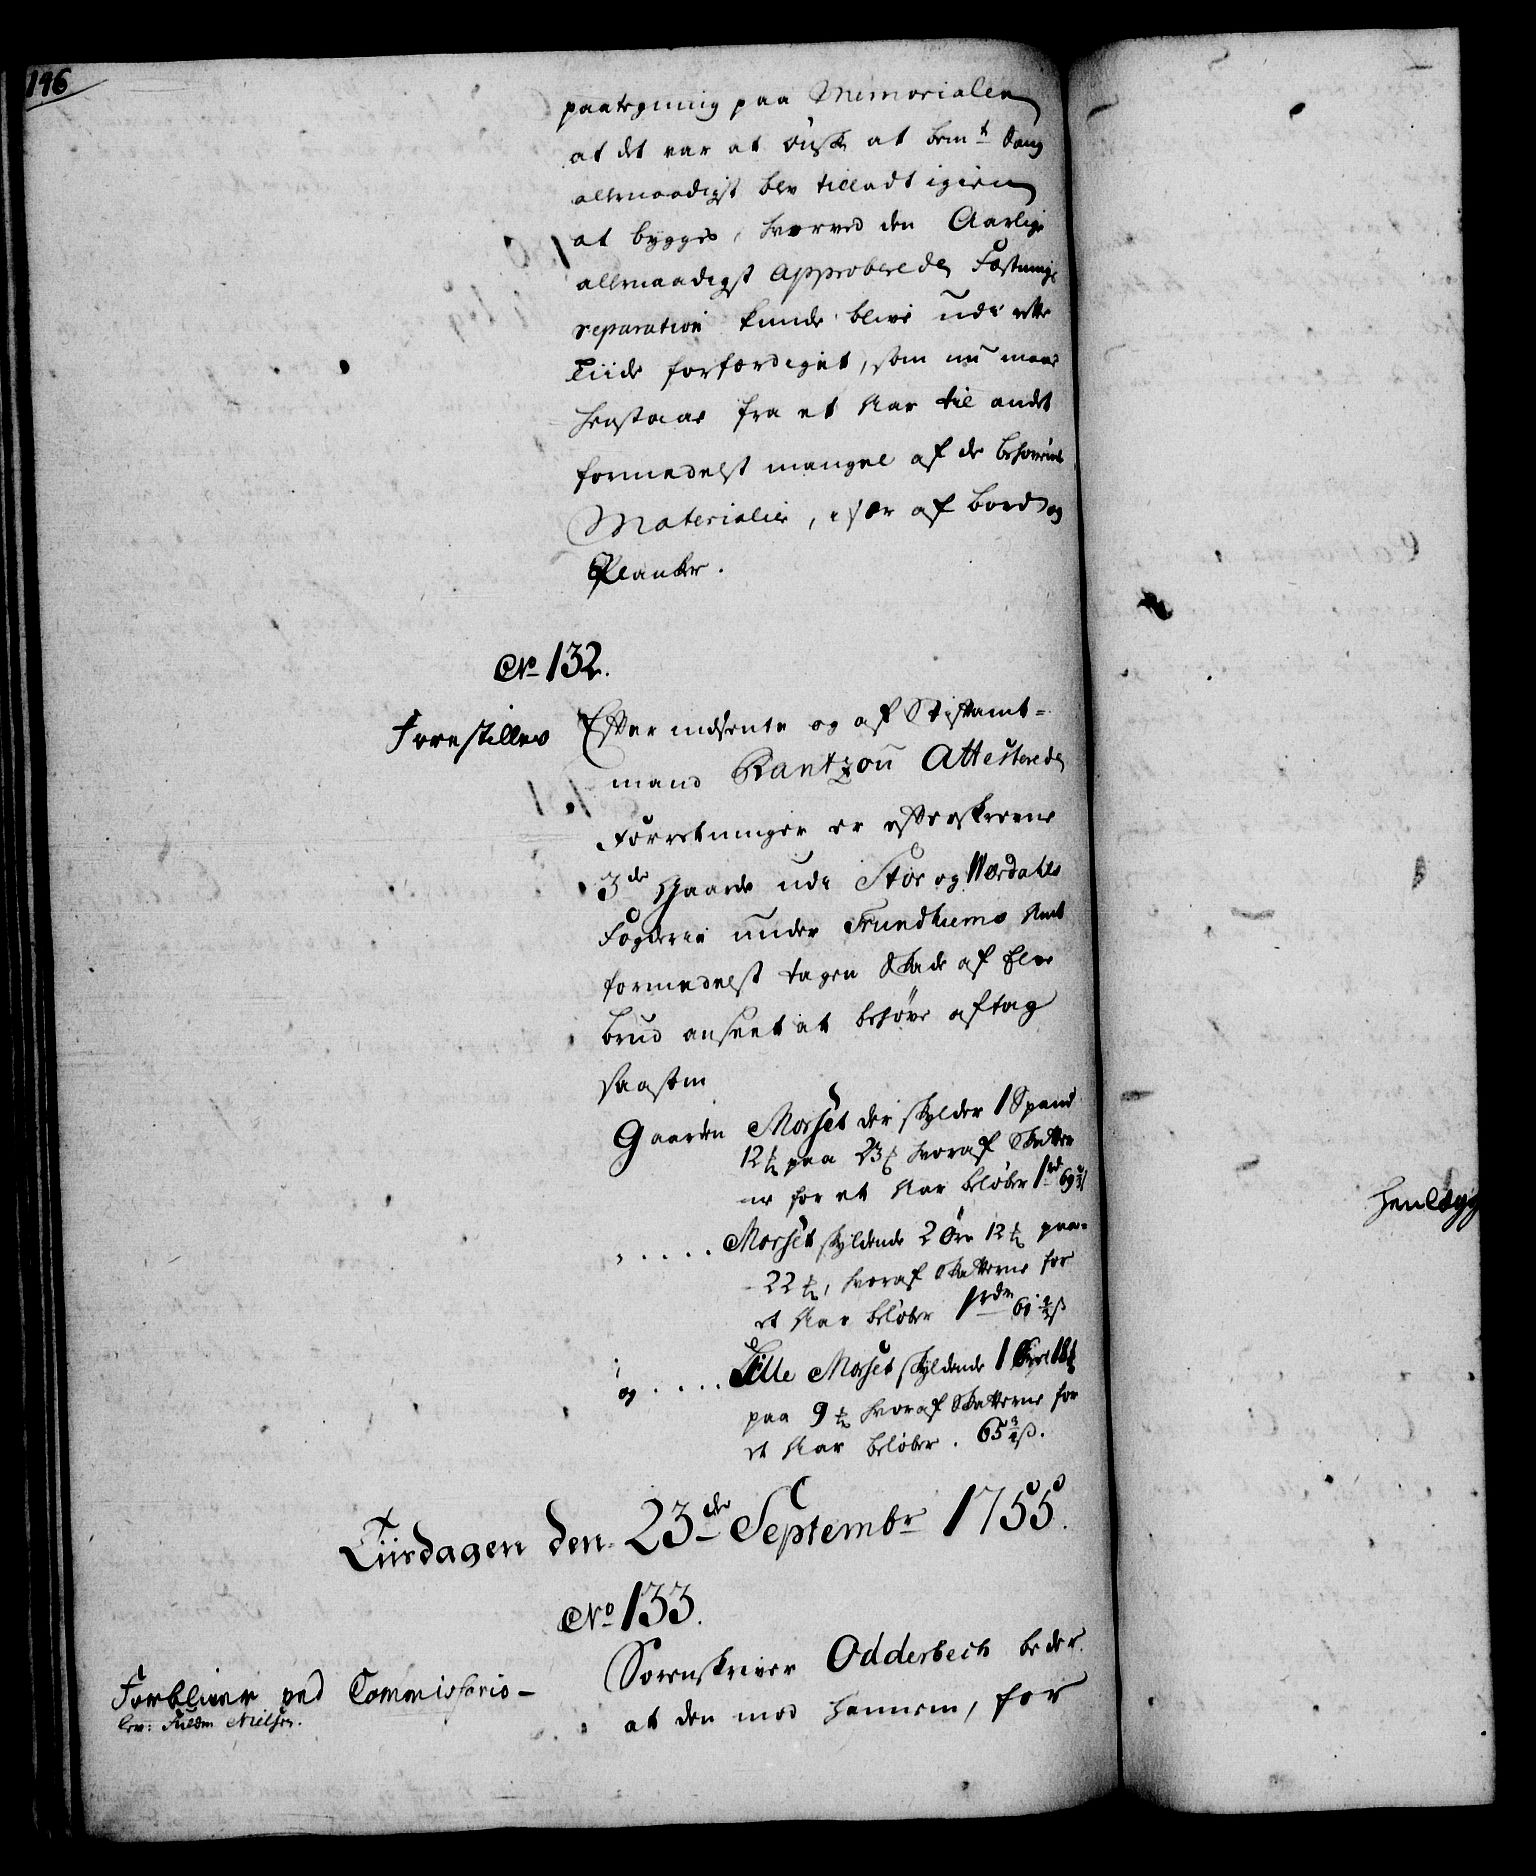 146
paategning paa Memorialen
at det var at ønske at bem:t Saug
allernaadigst blev tilladt igien
at bygges, hvorved den Aarlige
allernaadigst Approberede Fæstnings
reparation kunde blive udi rette
Tiide forfærdiget, som nu maae
henstaae fra et Aar til andet
formedelst mangel af de behøvende
Materialier, især af Bord og
Planker.
No 132.
Forestilles
Efter indsente og af Stiftamt-
mand Rantzou Attesterede
Forretninger er efterskrevne
3de Gaarde udi Stør og Værdahls
Fogderie under Trundhiems Amt
formedelst tagen Skade af Elve
brud anseet at behøve aftag
saasom
Gaarden Morset der skylder 1 Spand
12 1/2 paa 23 hvoraf Skatter
ne for et Aar beløber 1 rd 69
" ..... Morset skyldende 2 Øre 12 1/2 paa
22 1/2, hvoraf Skatterne for
et Aar beløber 1 rdr 61 1/2 ß
og ..... Lille Morset skyldende 1
paa 9 1/2 hvoraf Skatterne for
et Aar beløber. 65 3/4 ß.
Tiirdagen den 23de Septembr 1755.
No 133.
Forbliver ved Commissario-
lev: Fuldm Nielsen.
Sorenskriver Odderbech beder
at den mod hannem, for
henlægg